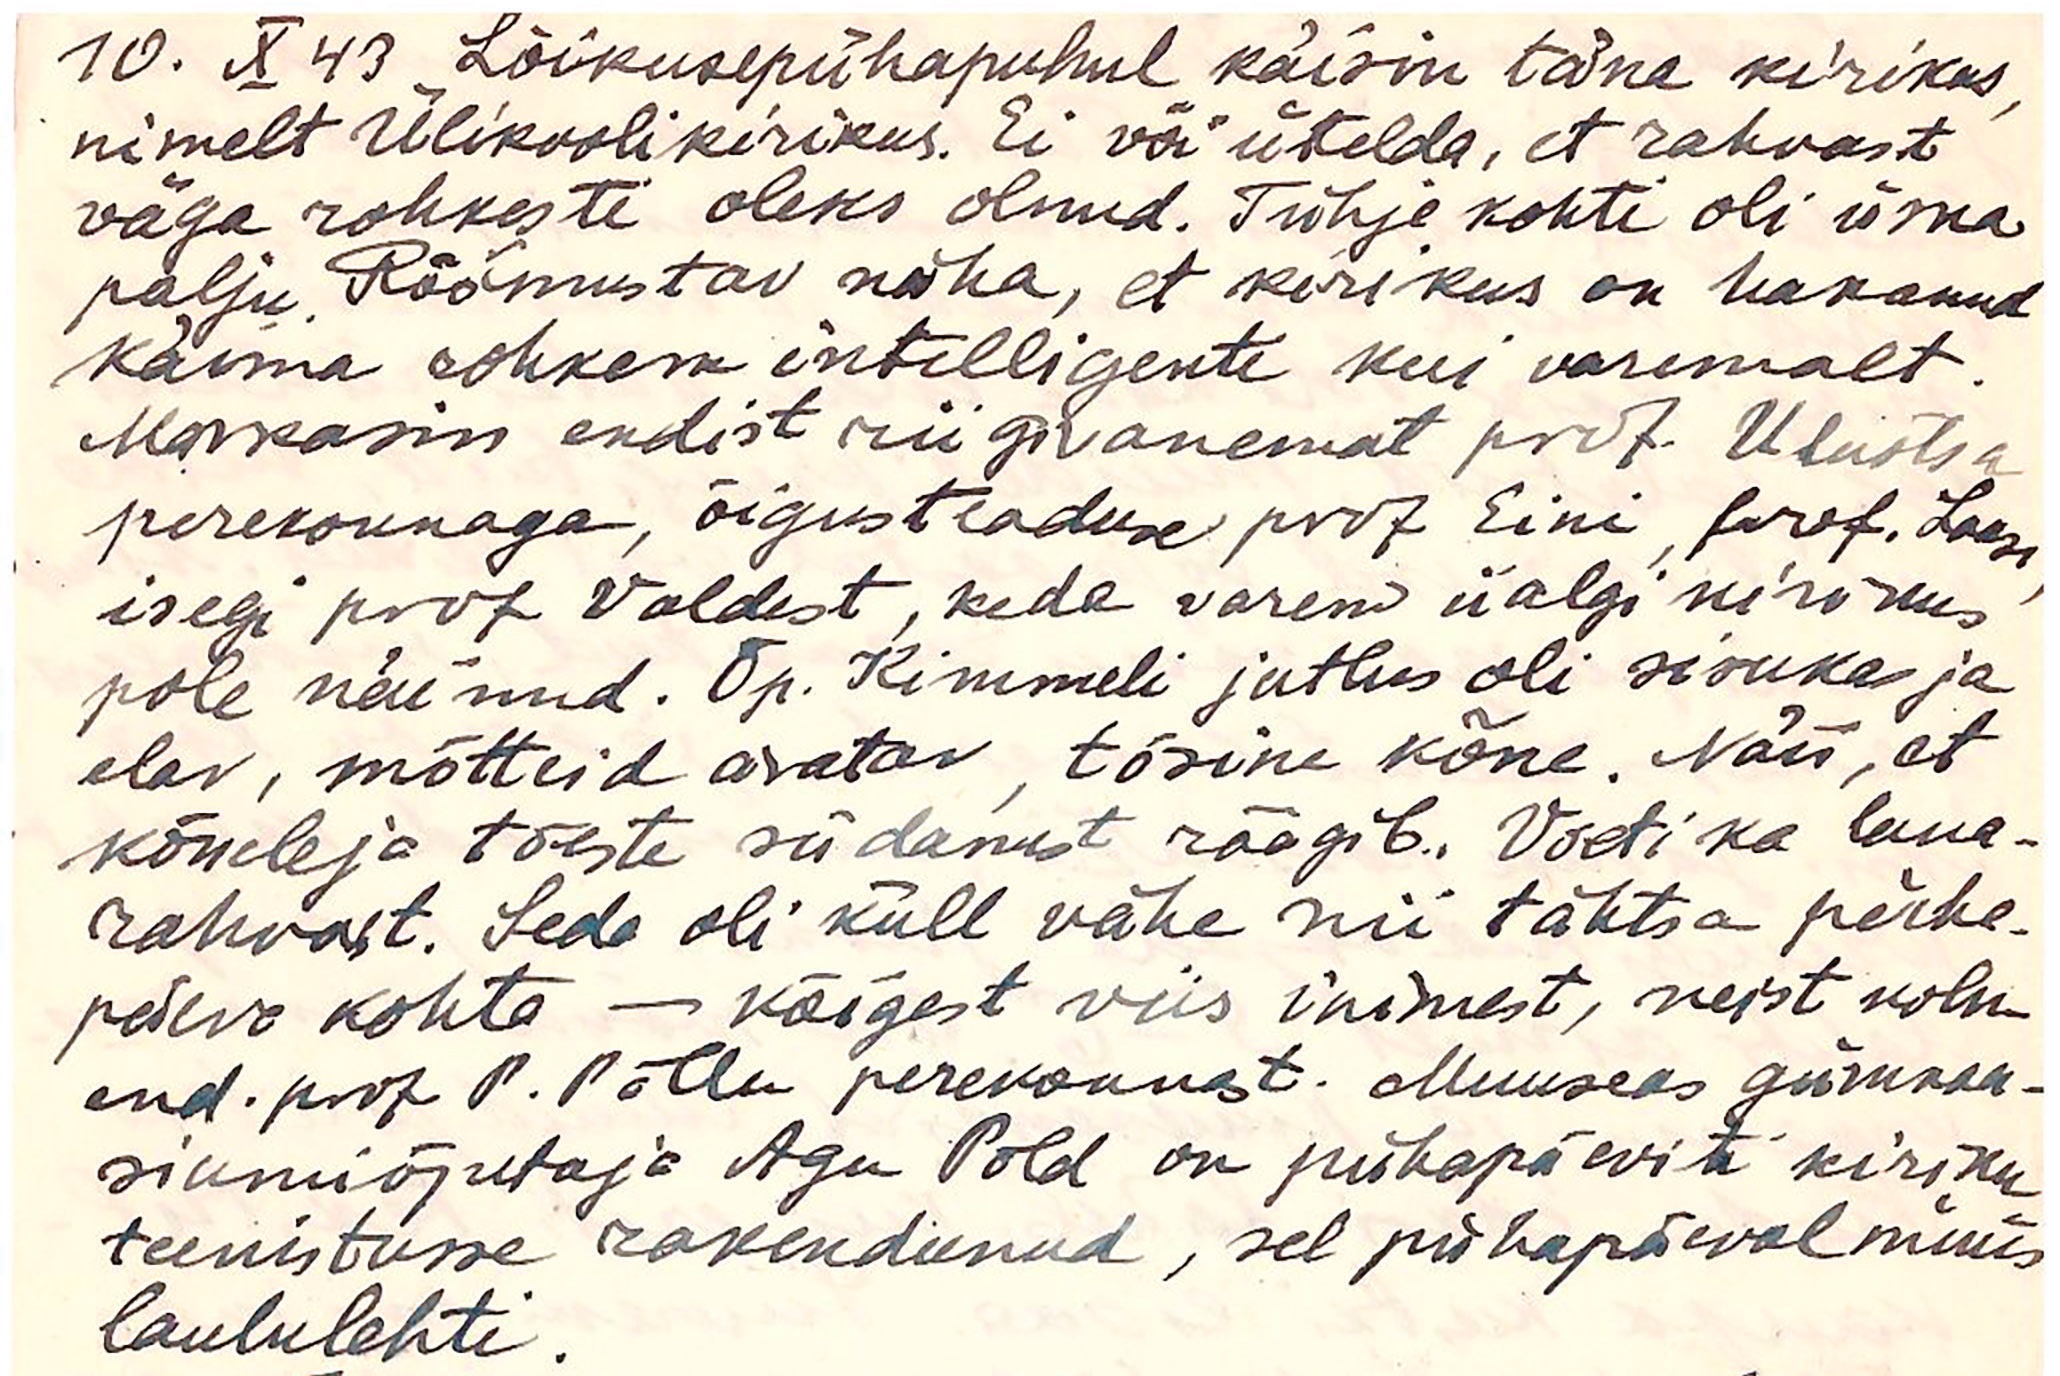 10. X 43 Lõikusepühapuhul käisin täna kirikus,
nimelt Ülikoolikirikus. Ei või ütelda, et rahvast
väga rohkesti oleks olnud. Tühje kohti oli üsna
palju. Rõõmustav näha, et kirikus on hakanud
käima rohkem intelligente kui varemalt.
Märkasin endist riigivanemat prof. Uluotsa
perekonnaga, õigusteaduse prof Eini, prof.
isegi prof Valdest, keda varem iialgi kirikus
pole näinud. Õp. Kimmeli jutlus oli sisukas ja
elav, mõtteid avatav, tõsine kõne. Näis, et
kõneleja tõeste südamest räägib. Võeti ka laua-
rahvast. Seda oli küll vähe nii tähtsa püha-
päeva kohta — kõigest viis inimest, neist kolm
end. prof P. Põllu perekonnast. Muuseas gümnaa-
siumiõpetaja Agu Põld on pühapäeviti kiriku
teenistusse rakendunud, sel pühapäeval müüs
laululehti.